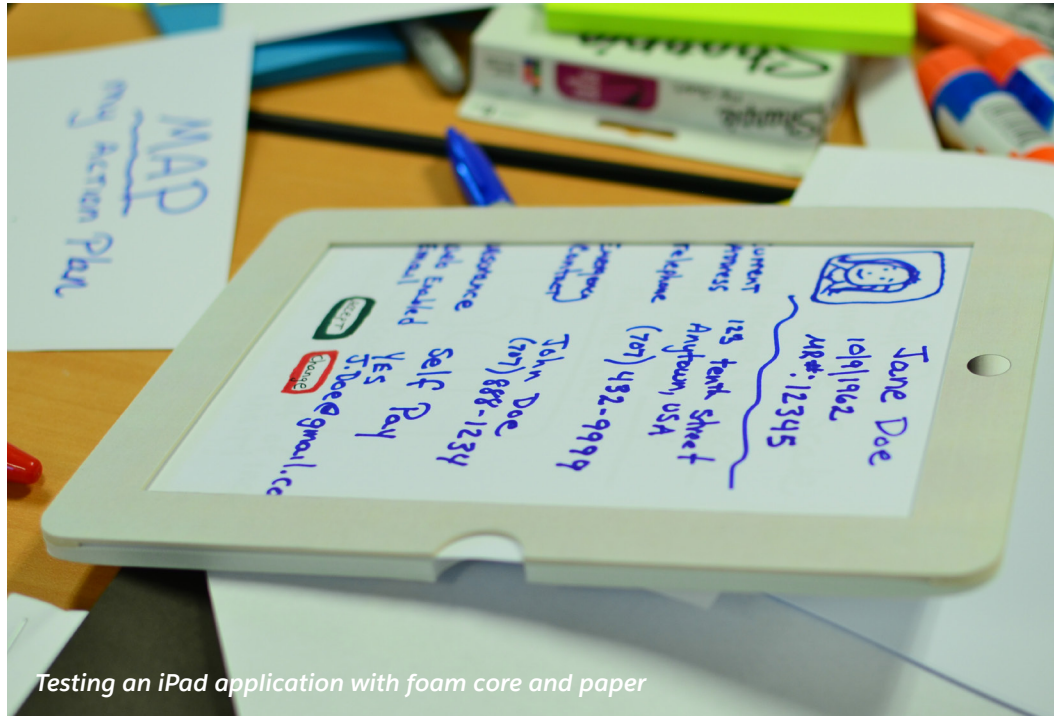 MAP
My Action Plan
Sharpie
Sharpie
Jane Doe
10/9/1962
MR#: 12345
Current
Address
123 tenth Street
Anytown, USA
Telephone
(707) 432-9999
Emergency
Contact
John Doe
(707) 888-1234
Insurance
Self Pay
YES
Email
J.Doe@gmail.co
Accept
Change
Testing an iPad application with foam core and paper